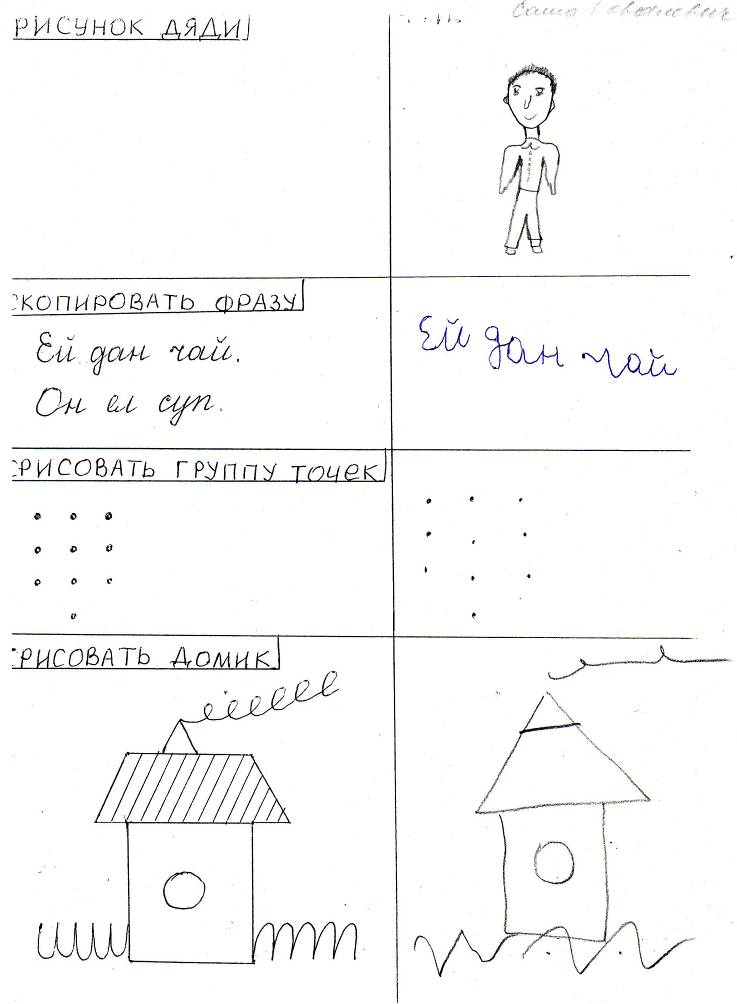 РИСУНОК ДЯДИ
Саша
СКОПИРОВАТЬ ФРАЗУ
Ей дан чай.
Он ел суп.
Ей дан чай
СРИСОВАТЬ ГРУППУ ТОЧЕК
СРИСОВАТЬ ДОМИК